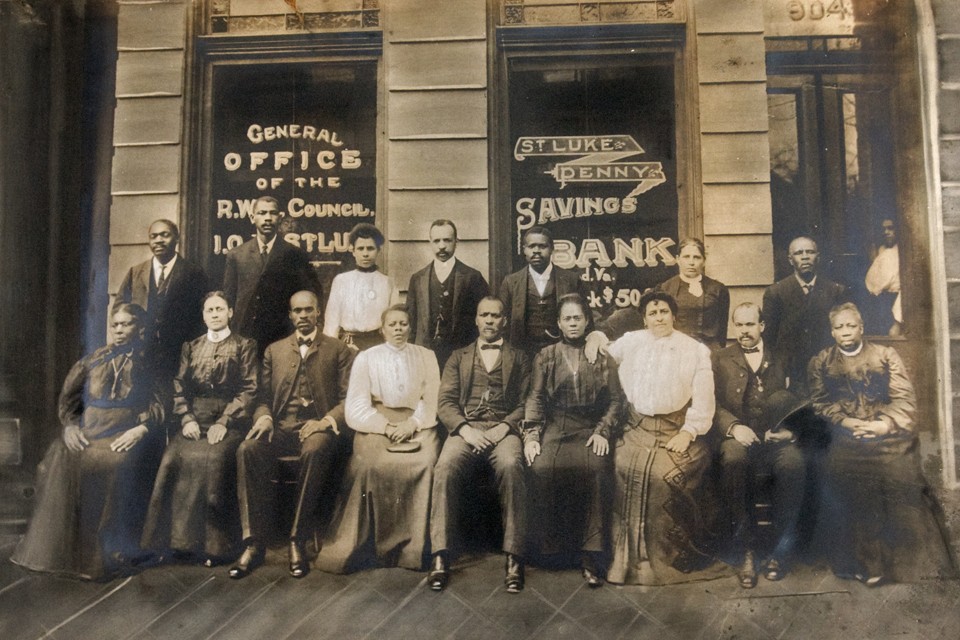 904
GENERAL
OFFICE
OF THE
R.W. COUNCIL.
I.O. ST LU
ST LUKE
PENNY
SAVINGS
BANK
d.Va.
k $50